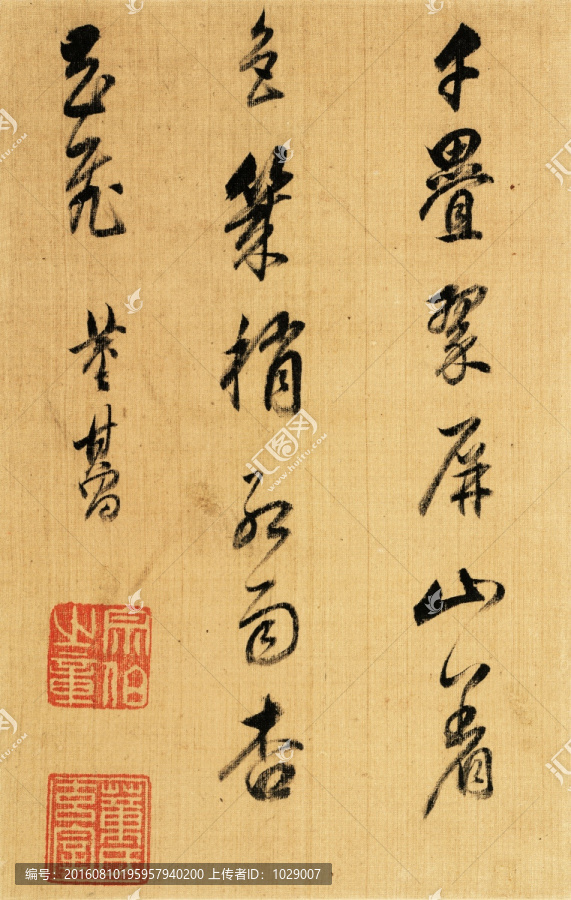 千疊翠屏山着
色稍紅雨杏
花飛
董其昌
宗伯之章
董氏玄宰
汇图网
www.huitu.com
编号：20160810195957940200 上传者ID：1029007